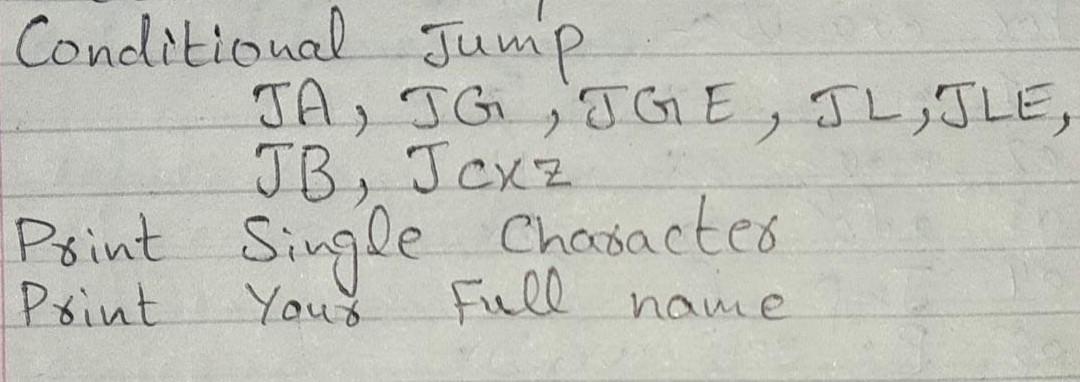 Conditional Jump
JA, JG, JGE, JL, JLE,
JB, Jcxz
Print Single Character
Print Your Full name